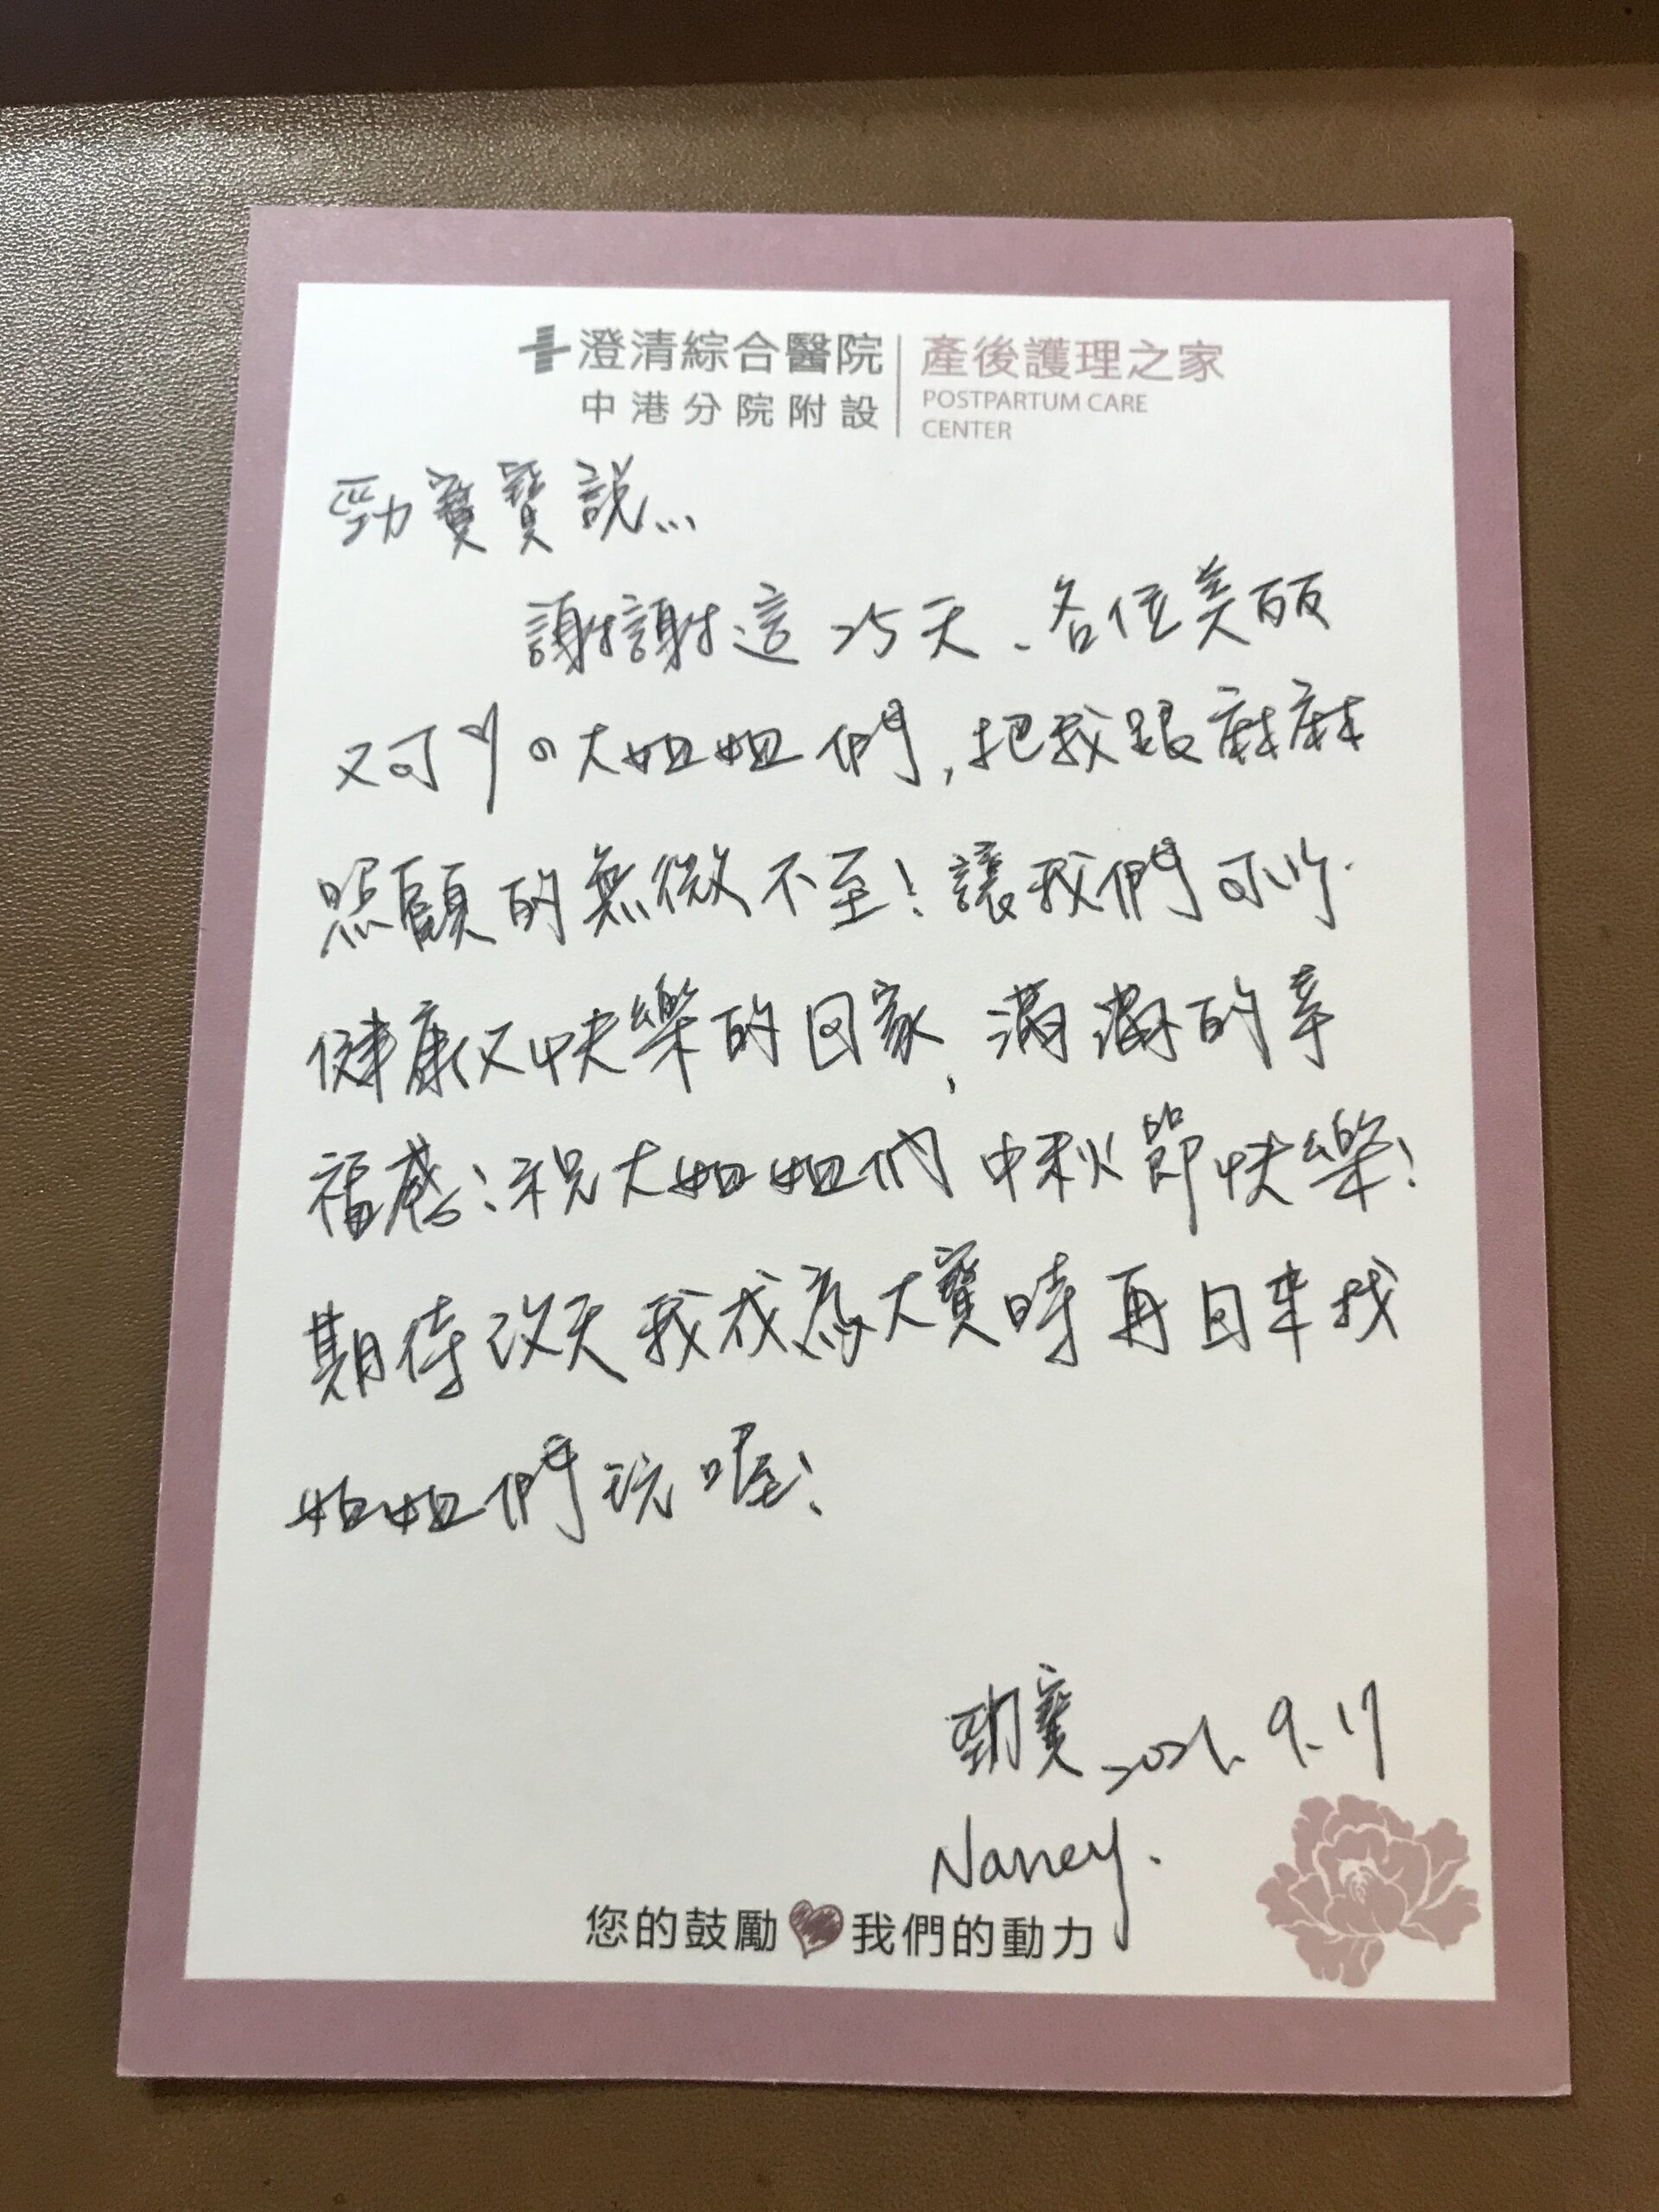 澄清綜合醫院
中港分院附設
產後護理之家
POSTPARTUM CARE
CENTER
勁寶寶說...
謝謝這25天、各位美丽
又可愛の大姐姐們,把我跟麻麻
照顧的無微不至!讓我們可以
健康又快樂的回家,滿滿的幸
福感!祝大姐姐們中秋節快樂!
期待改天我成為大寶時再回來找
姐姐們玩喔!
勁寶 2021.9.17
Nancy.
您的鼓勵 我們的動力